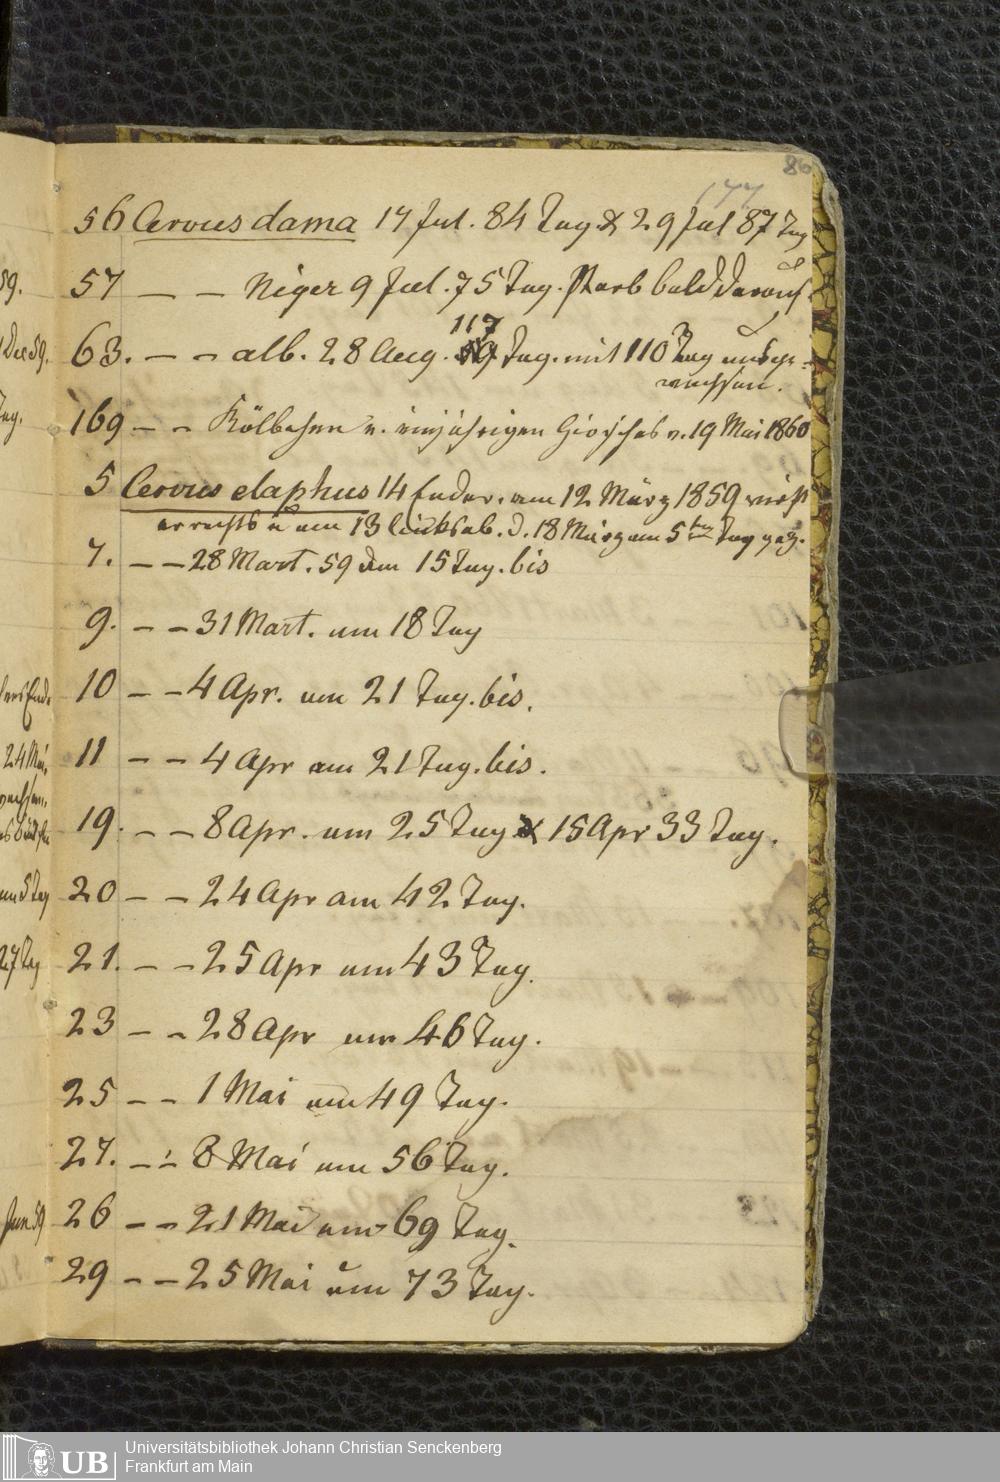 86
177
56 Cervus dama 17 Jul. 84 Tag & 29 Jul 87 Tag
57 — — Niger 9 Jul. 75 Tag. starb bald darauf
117
63. — — alb. 28 Aug. Tag. mit 110 Tag ausge-
wachsen.
169 — — Kölbchen v. einjährigen Hirsches v. 19 Mai 1860
5 Cervus elaphus 14 Ender. am 12 März 1859 wirft
er rechts u am 13 links ab. d. 18 März am 5ten Tag gez.
7. — — 28 Mart. 59 am 15 Tag. bis
9. — — 31 Mart. am 18 Tag
10 — — 4 Apr. am 21 Tag. bis.
11 — — 4 Apr am 21 Tag. bis.
19. — — 8 Apr. am 25 Tag & 15 Apr 33 Tag.
20 — — 24 Apr am 42 Tag.
21. — — 25 Apr am 43 Tag.
23 — — 28 Apr am 46 Tag.
25 — — 1 Mai am 49 Tag.
27. — — 8 Mai am 56 Tag.
26 — — 21 Mai am 69 Tag.
29 — — 25 Mai am 73 Tag.
59.
Dec 59.
Tag.
24 Mai.
am 5 Tag
27 Tag
Jun 59
UB
Universitätsbibliothek Johann Christian Senckenberg
Frankfurt am Main